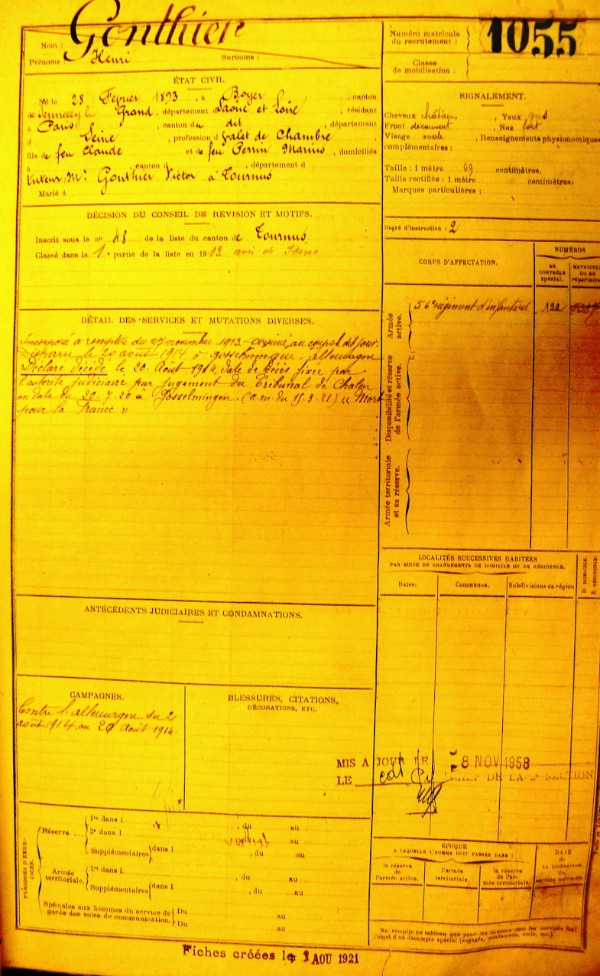 Nom : Gonthier
Prénoms : Henri Surnoms :
Numéro matricule
du recrutement :
1055
Classe
de mobilisation :
ÉTAT CIVIL.
Né le 28 Février 1893, à Boyer, canton
de Sennecey le Grand, département Saône et Loire, résidant
à Paris, canton du dit, département
d Seine, profession d Valet de Chambre
fils de feu Claude et de feu Perrin Marius, domiciliés
à, canton d, département d
tuteur, Mr Gonthier Victor à Tournus
Marié à
SIGNALEMENT.
Cheveux châtain, Yeux gris
Front découvert, Nez fort
Visage ovale, Renseignements physionomiques
complémentaires :
Taille : 1 mètre 69 centimètres.
Taille rectifiée : 1 mètre centimètres;
Marques particulières :
Degré d'instruction : 2
DÉCISION DU CONSEIL DE REVISION ET MOTIFS.
Inscrit sous le n° 48 de la liste du canton de Tournus
Classé dans la 1e partie de la liste en 1913
CORPS D'AFFECTATION.
NUMÉROS
AU
CONTRÔLE
spécial.
MATRICULE
OU AU
RÉPERTOIRE
Armée
active.
56e régiment d'infanterie
122
Disponibilité et réserve
de l'armée active.
Armée territoriale
et sa réserve.
DÉTAIL DES SERVICES ET MUTATIONS DIVERSES.
Incorporé à compter du 27 novembre 1913 arrivé au corps le dit jour
Disparu le 20 août 1914 à Gosselmingen Allemagne
Déclaré décédé le 20 Août 1914, date de décès fixée par
l'autorité judiciaire par jugement du Tribunal de Chalon
en date du 20.7.20 à Gosselmingen (a.m. du 15.3.21) « Mort
pour la France »
LOCALITÉS SUCCESSIVES HABITÉES
PAR SUITE DE CHANGEMENTS DE DOMICILE OU DE RÉSIDENCE.
Dates. Communes. Subdivisions de région
D. DOMICILE.
R. RÉSIDENCE.
ANTÉCÉDENTS JUDICIAIRES ET CONDAMNATIONS.
CAMPAGNES.
Contre l'allemagne du 2
août 1914 au 20 Août 1914
BLESSURES, CITATIONS,
DÉCORATIONS, ETC.
MIS A JOUR LE 8 NOV 1958
LE CHEF DE LA SECTION
PÉRIODES D'EXERCICES.
Réserve
1re dans l , du au
2e dans l , du au
Supplémentaires dans l , du au
Armée
territoriale.
1re dans l , du au
Supplémentaires dans l , du au
Spéciales aux hommes du service de
garde des voies de communication.
Du au
Du au
ÉPOQUE
A LAQUELLE L'HOMME DOIT PASSER DANS :
la réserve
de l'armée active.
l'armée
territoriale.
la réserve
de l'armée territoriale.
DATE
DE LA LIBÉRATION
DU SERVICE MILITAIRE
Fiches créées le 1 AOU 1921